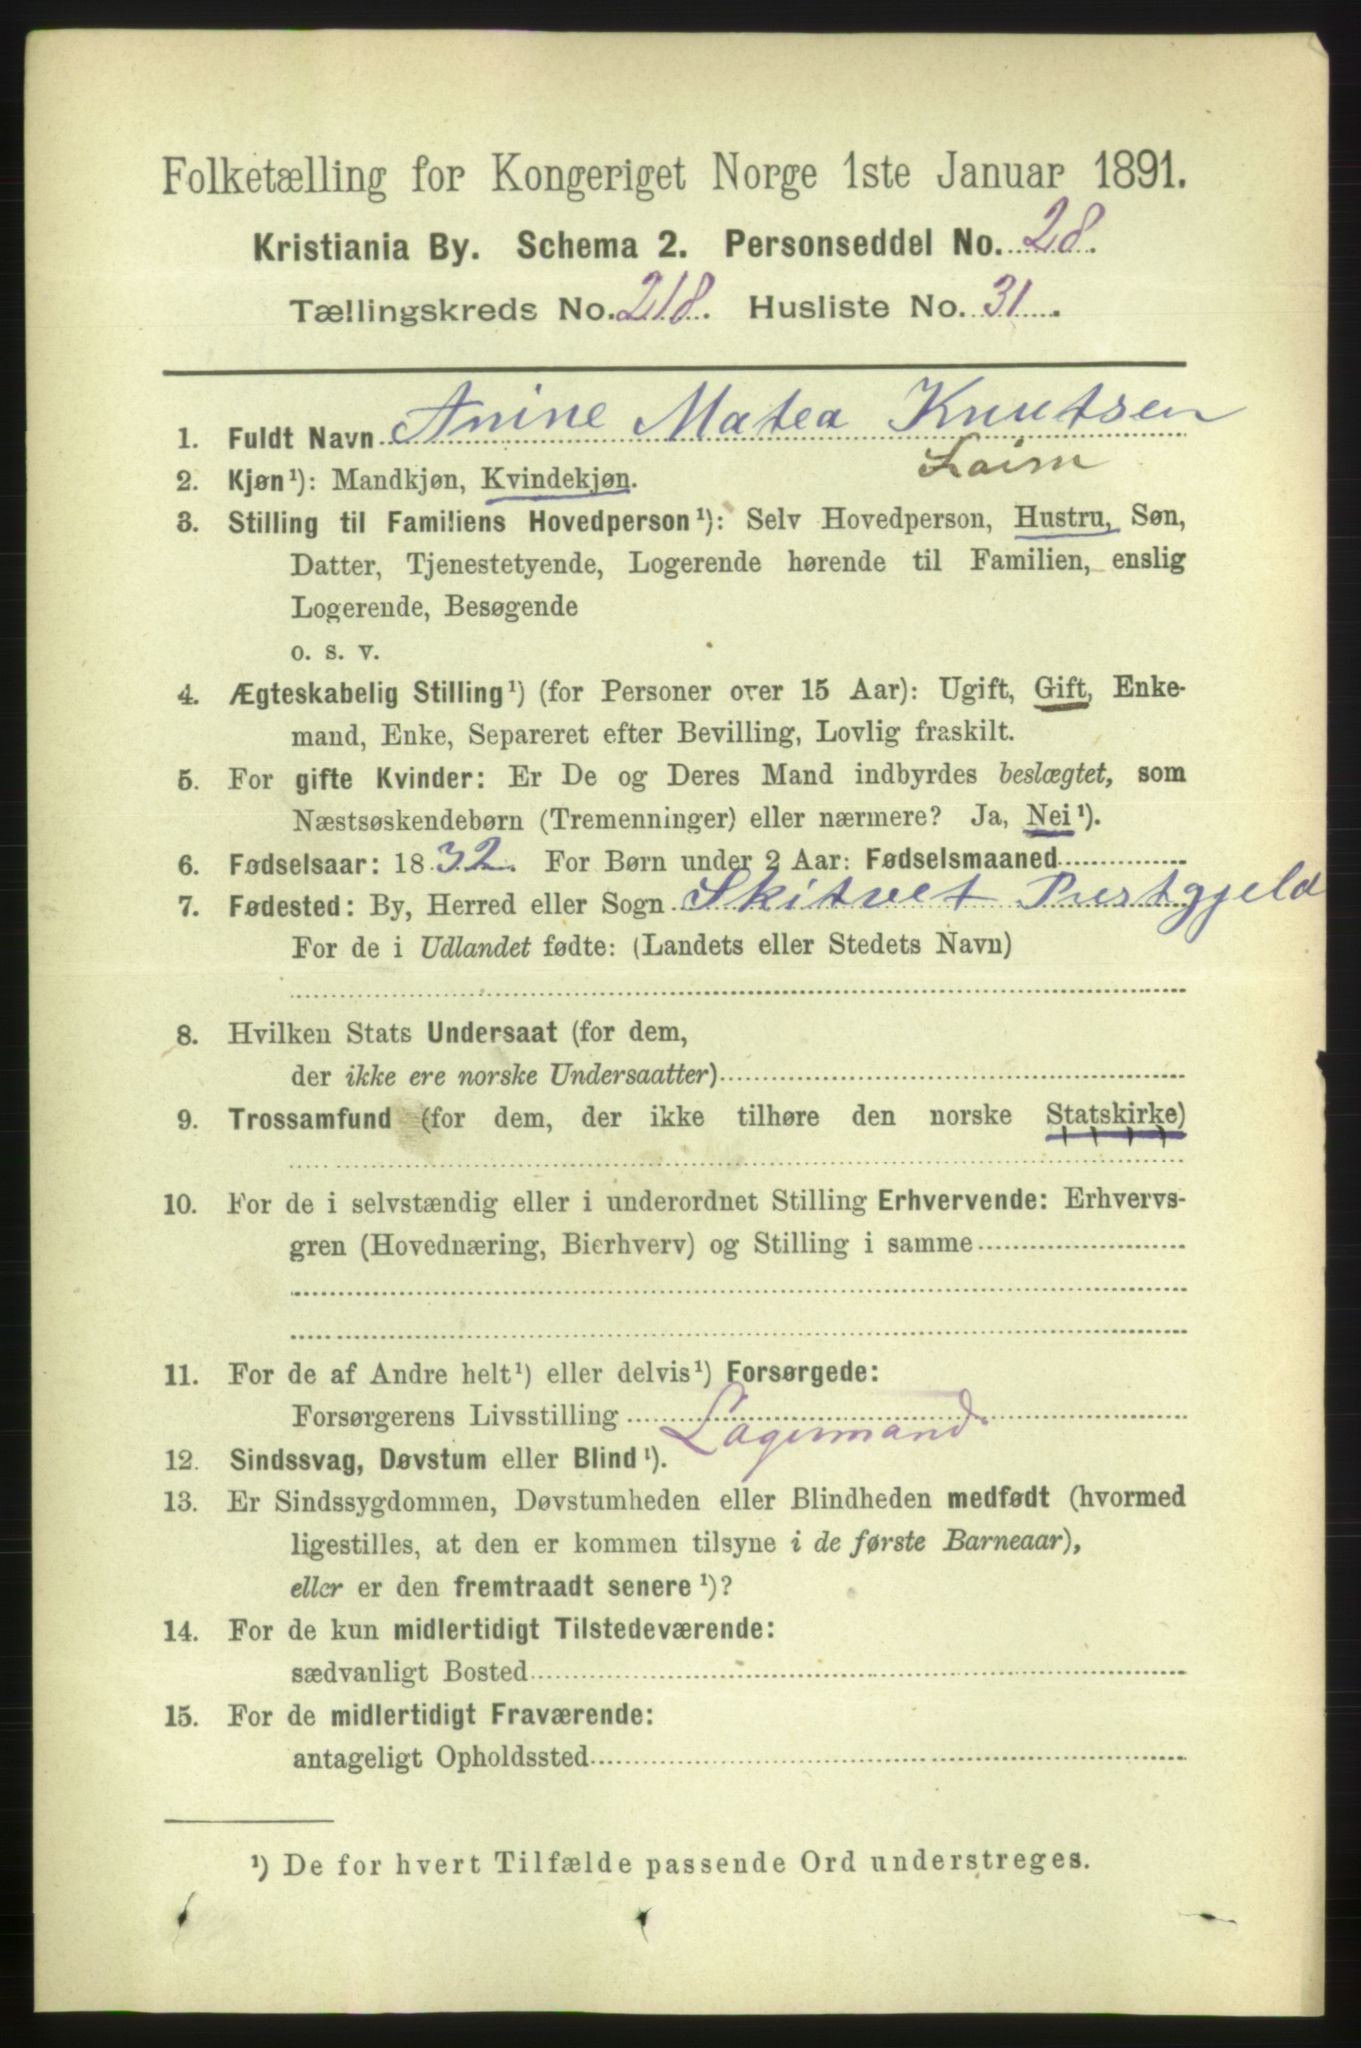 Folketælling for Kongeriget Norge 1ste Januar 1891.
Kristiania By. Schema 2. Personseddel No. 28.
Tællingskreds No. 218. Husliste No. 31.
1. Fuldt Navn Anine Matea Knutsen
2. Kjøn¹): Mandkjøn, Kvindekjøn.
3. Stilling til Familiens Hovedperson¹): Selv Hovedperson, Hustru, Søn,
Datter, Tjenestetyende, Logerende hørende til Familien, enslig
Logerende, Besøgende
o. s. v.
4. Ægteskabelig Stilling¹) (for Personer over 15 Aar): Ugift, Gift, Enke-
mand, Enke, Separeret efter Bevilling, Lovlig fraskilt.
5. For gifte Kvinder: Er De og Deres Mand indbyrdes beslægtet, som
Næstsøskendebørn (Tremenninger) eller nærmere? Ja, Nei¹).
6. Fødselsaar: 1832. For Børn under 2 Aar: Fødselsmaaned
7. Fødested: By, Herred eller Sogn Skitvet Prestgjeld
For de i Udlandet fødte: (Landets eller Stedets Navn)
8. Hvilken Stats Undersaat (for dem,
der ikke ere norske Undersaatter)
9. Trossamfund (for dem, der ikke tilhøre den norske Statskirke)
10. For de i selvstændig eller i underordnet Stilling Erhvervende: Erhvervs-
gren (Hovednæring, Bierhverv) og Stilling i samme
11. For de af Andre helt¹) eller delvis¹) Forsørgede:
Forsørgerens Livsstilling Lagermand
12. Sindssvag, Døvstum eller Blind¹).
13. Er Sindssygdommen, Døvstumheden eller Blindheden medfødt (hvormed
ligestilles, at den er kommen tilsyne i de første Barneaar),
eller er den fremtraadt senere¹)?
14. For de kun midlertidigt Tilstedeværende:
sædvanligt Bosted
15. For de midlertidigt Fraværende:
antageligt Opholdssted
¹) De for hvert Tilfælde passende Ord understreges.